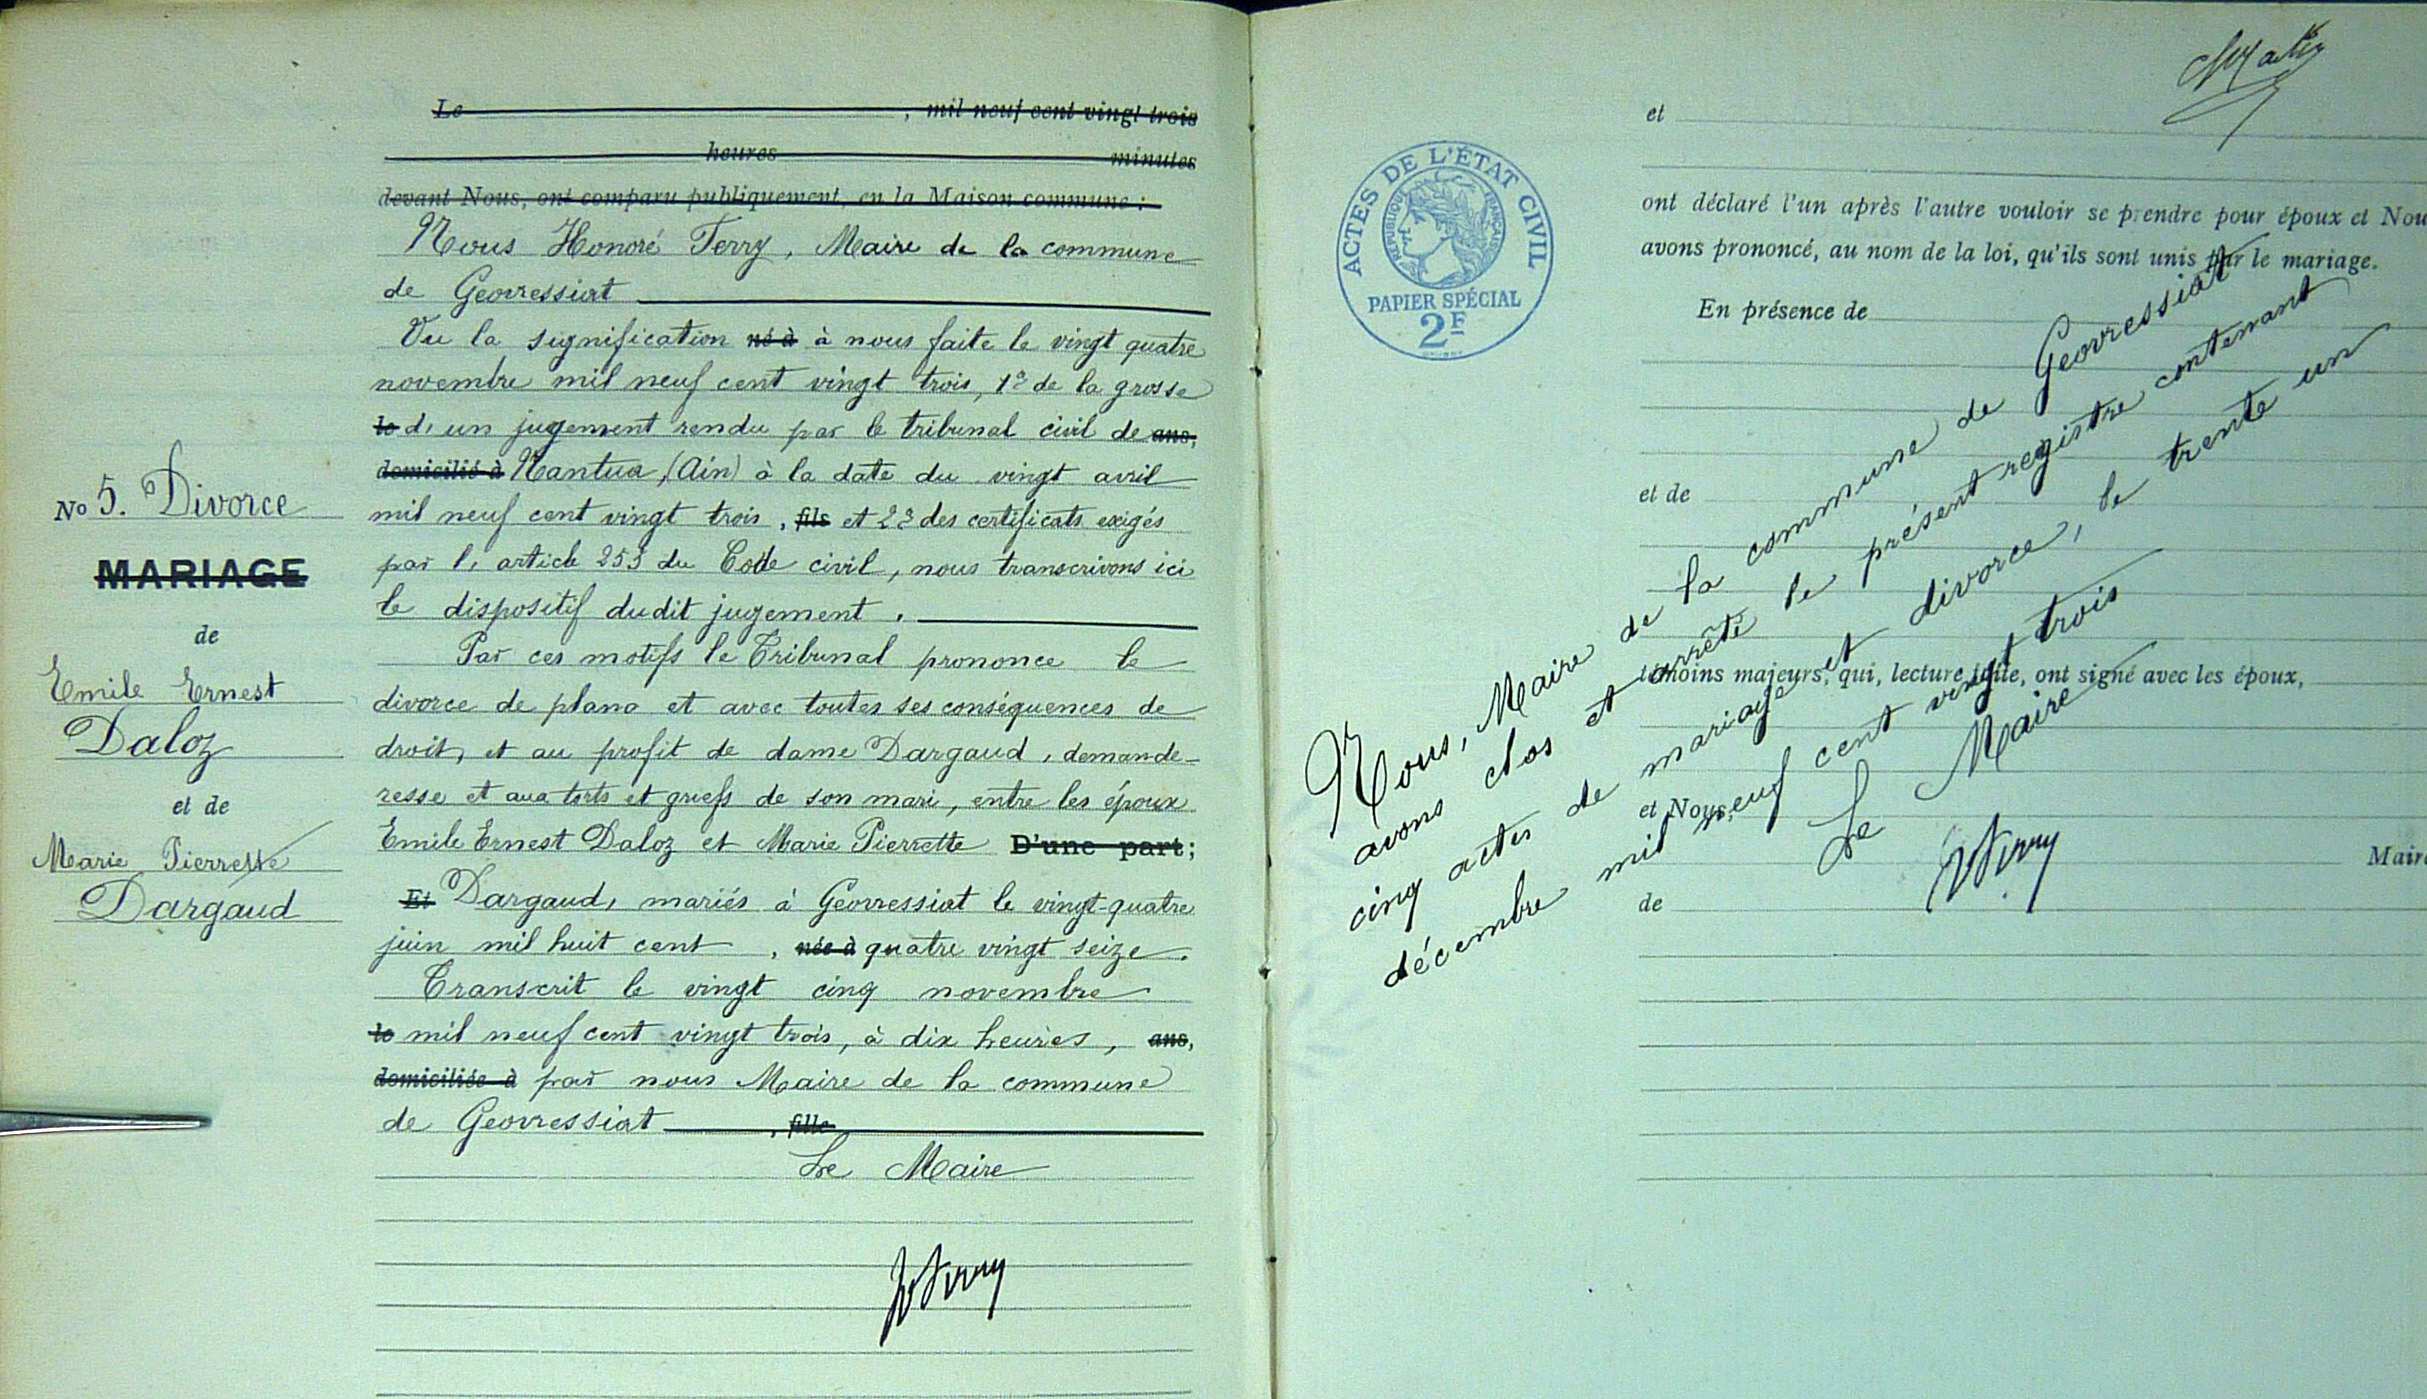 Le , mil neuf cent vingt trois
heures minutes
devant Nous, ont comparu publiquement, en la Maison commune :
Nous Honoré Ferry, Maire de la commune
de Geovressiat
Vu la signification né à à nous faite le vingt quatre
novembre mil neuf cent vingt trois, 1º de la grosse
le d'un jugement rendu par le tribunal civil de ans,
domicilié à Nantua, (Ain) à la date du vingt avril
mil neuf cent vingt trois, fils et 2º des certificats exigés
par l'article 253 du Code civil, nous transcrivons ici
le dispositif dudit jugement.
Par ces motifs le Tribunal prononce le
divorce de plano et avec toutes ses conséquences de
droit, et au profit de dame Dargaud, demande-
resse et aux torts et griefs de son mari, entre les époux
Emile Ernest Daloz et Marie Pierrette D'une part;
Et Dargaud, mariés à Geovressiat le vingt-quatre
juin mil huit cent , née à quatre vingt seize.
Transcrit le vingt cinq novembre
le mil neuf cent vingt trois, à dix heures, ans,
domiciliée à par nous Maire de la commune
de Geovressiat , fille
Le Maire
No 5. Divorce
MARIAGE
de
Emile Ernest
Daloz
et de
Marie Pierrette
Dargaud
ACTES DE L'ÉTAT CIVIL
RÉPUBLIQUE FRANÇAISE
PAPIER SPÉCIAL
2F
et
ont déclaré l'un après l'autre vouloir se prendre pour époux et Nou
avons prononcé, au nom de la loi, qu'ils sont unis par le mariage.
En présence de
et de
témoins majeurs, qui, lecture faite, ont signé avec les époux,
et Nous,
Maire
de
Nous, Maire de la commune de Geovressiat
avons clos et arrêté le présent registre contenant
cinq actes de mariage et divorce, le trente un
décembre mil neuf cent vingt trois
Le Maire